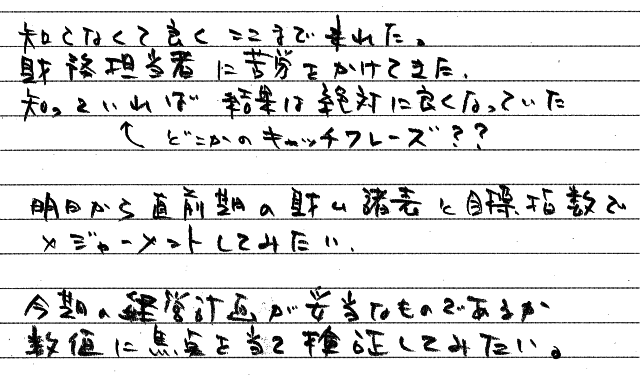 知らなくて良くここまで来れた。
財務担当者に苦労をかけてきた。
知っていれば結果は絶対に良くなっていた
↑どこかのキャッチフレーズ??
明日から直前期の財ム諸表と目標指数で
メジャーメントしてみたい。
今期の経営計画が妥当なものであるか
数値に焦点を当て検証してみたい。